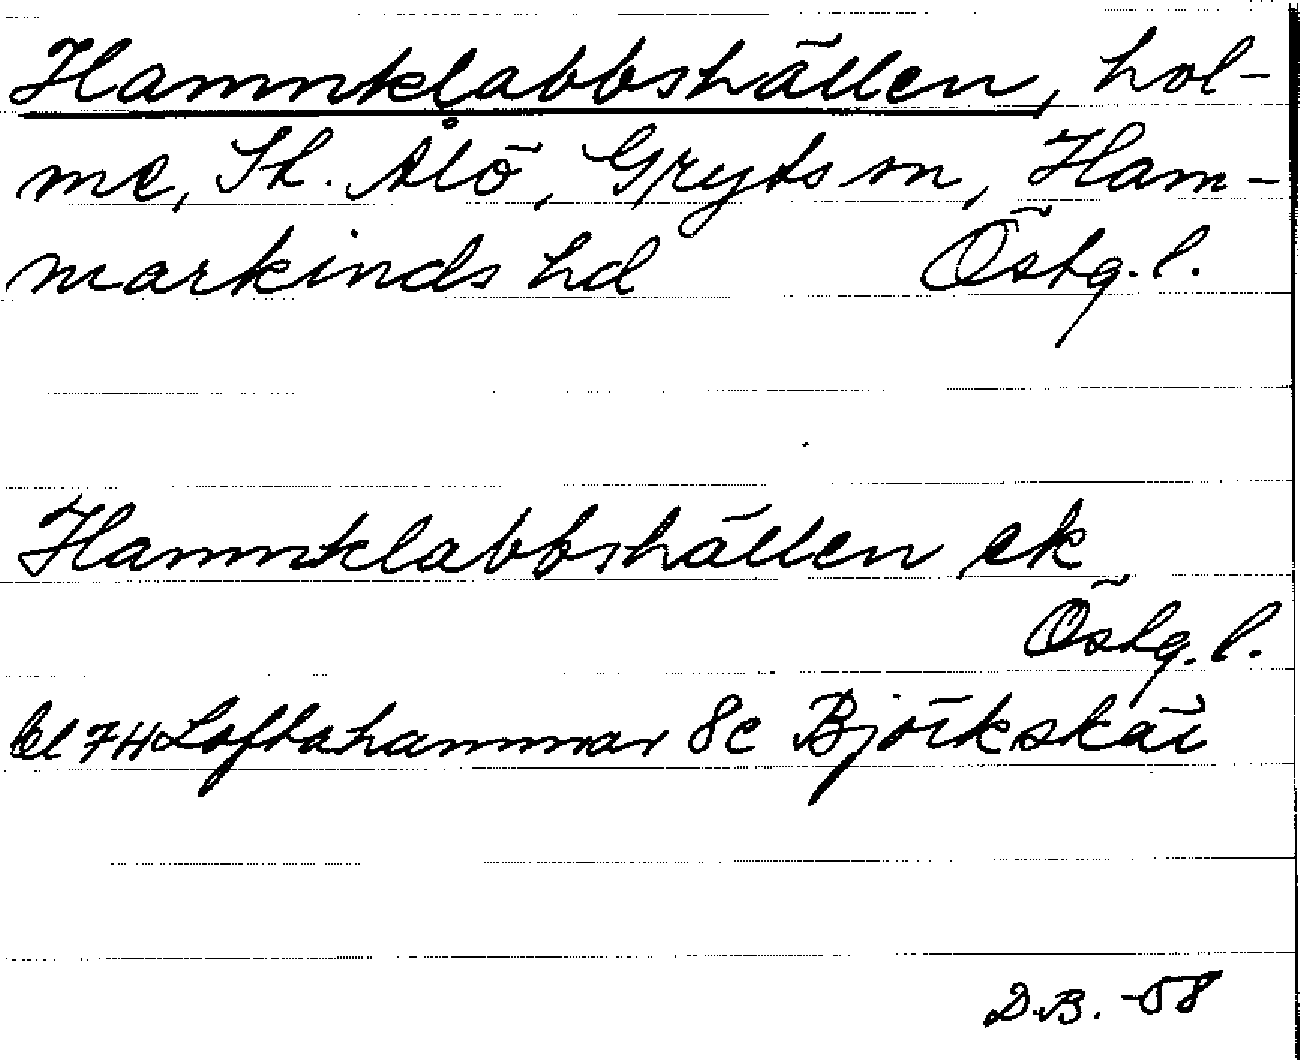 Hamnklabbshällen, hol-
me, St. Ålö, Gryts sn, Ham-
markinds hd Östg. l.
Hamnklabbshällen ek
Östg. l.
bl 7H Loftahammar 8c Björkskär
D.B. -58